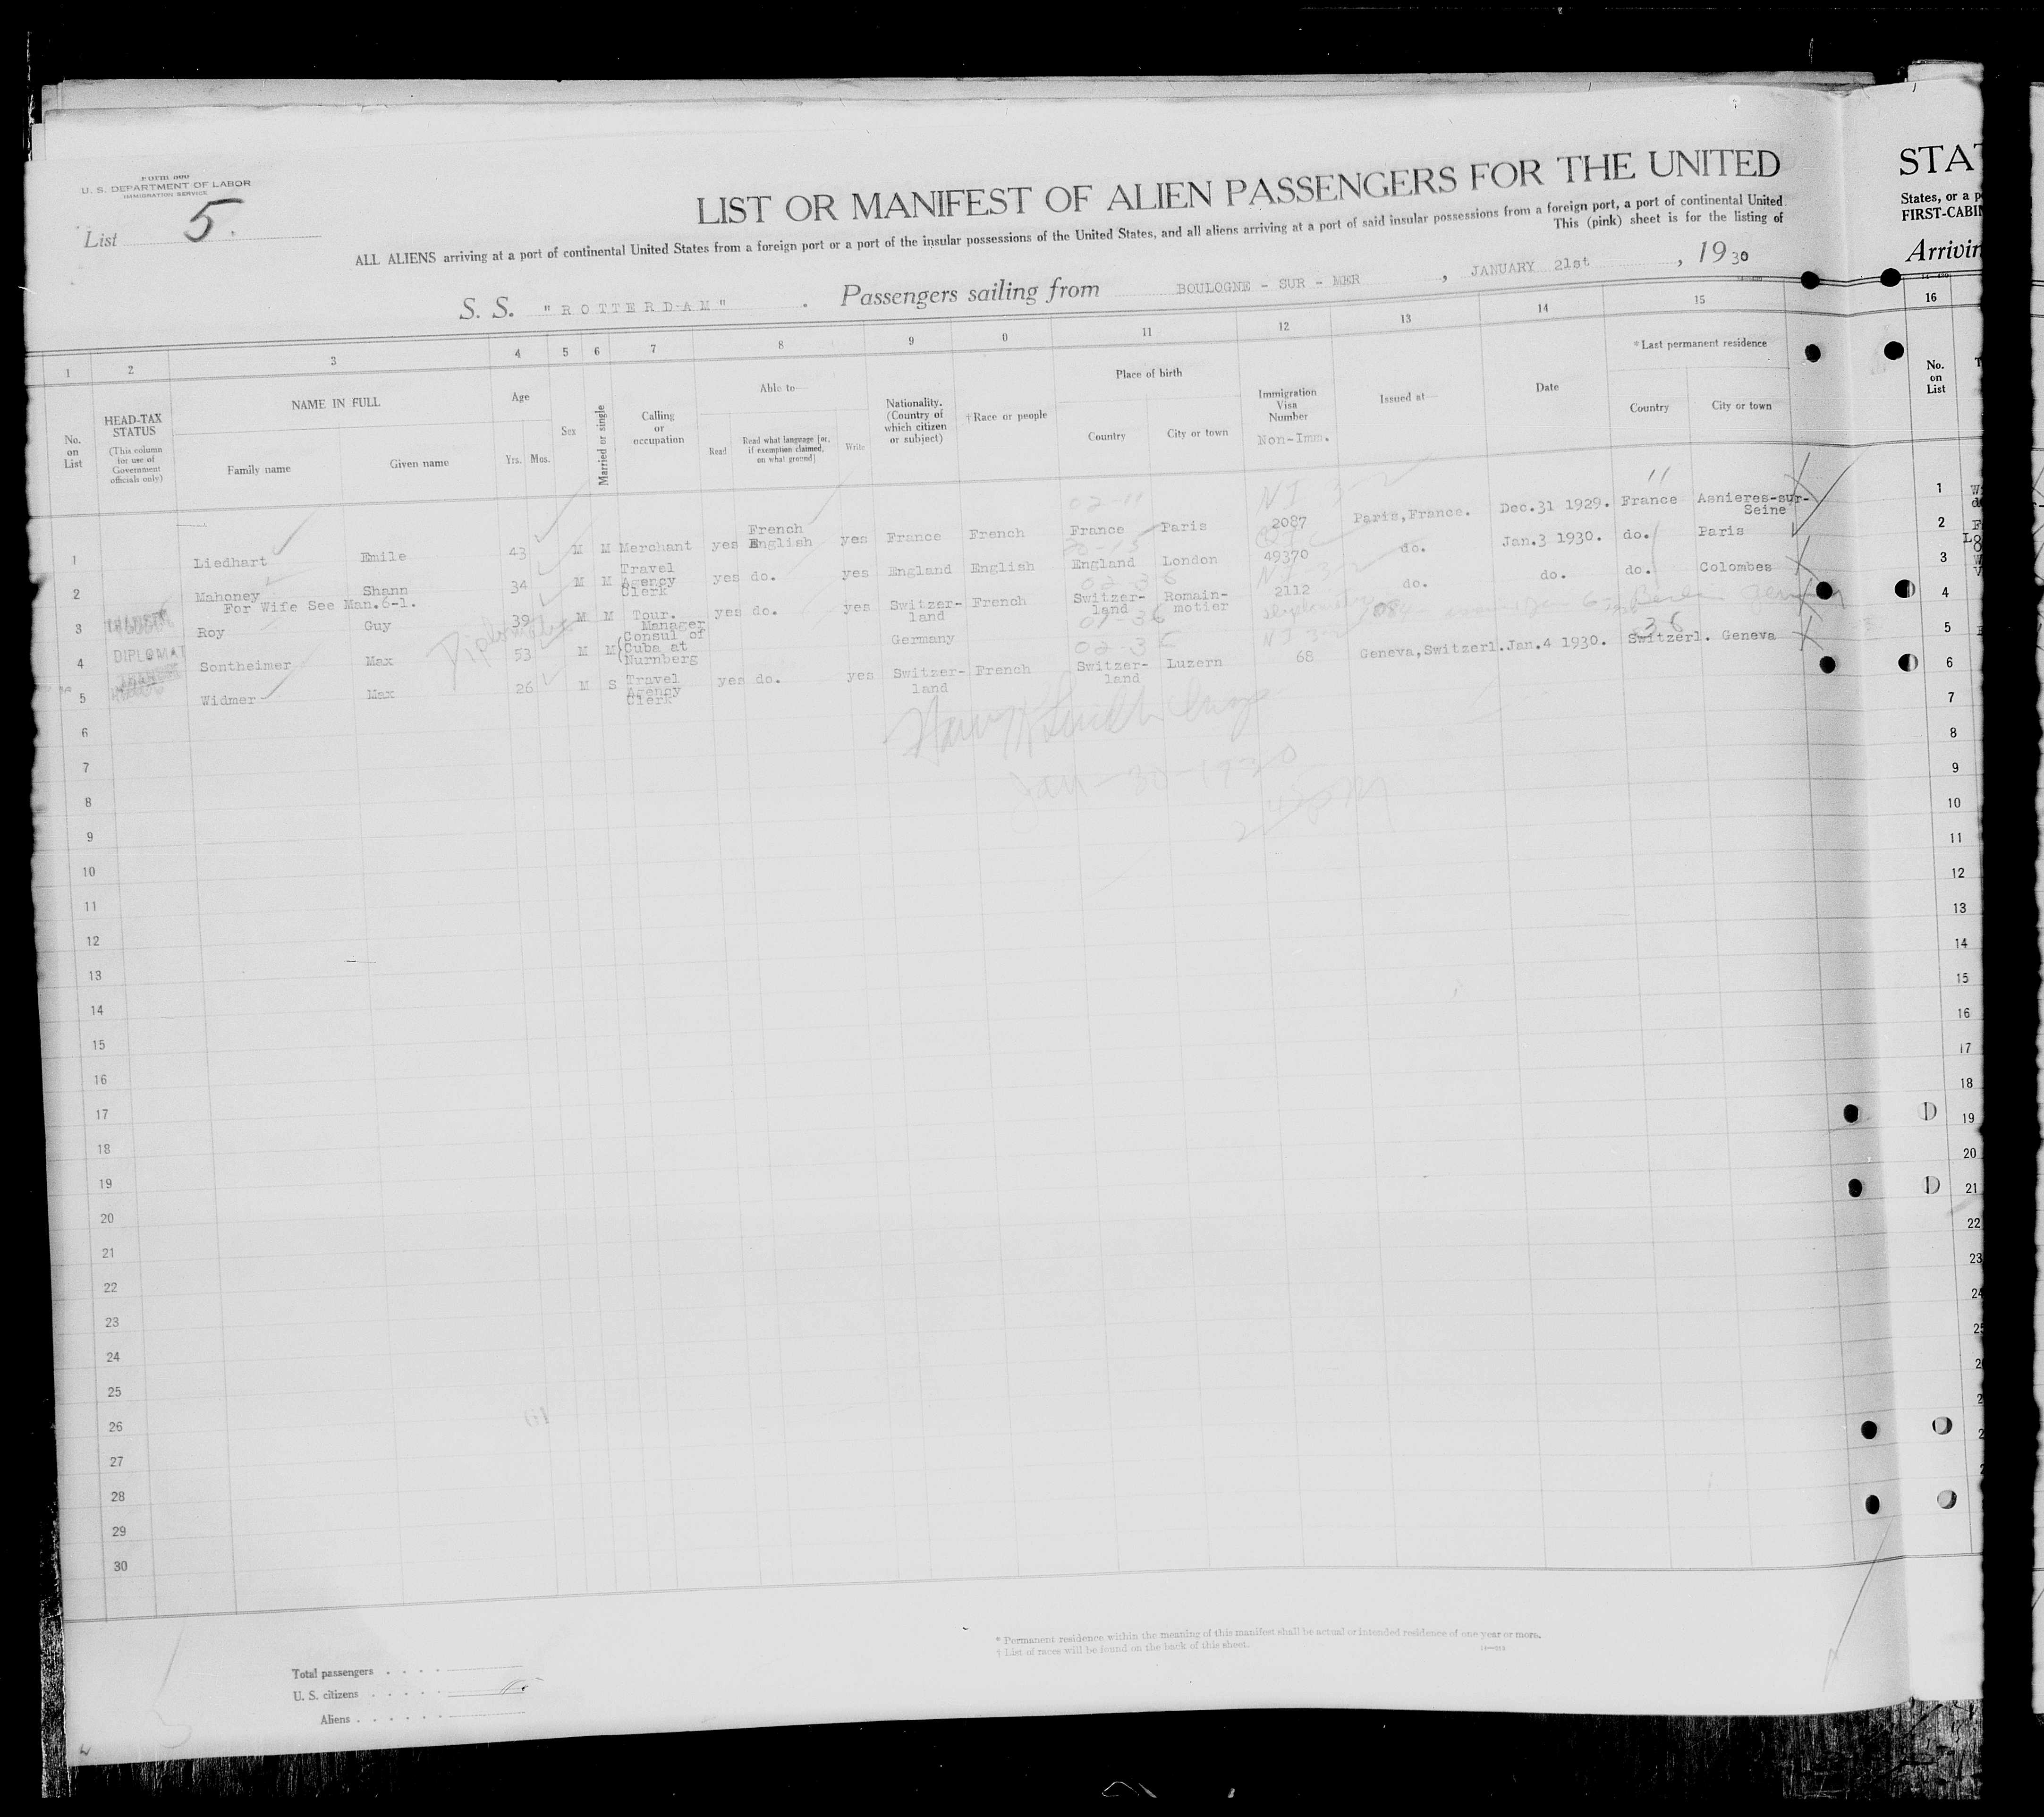 Form 500
U. S. DEPARTMENT OF LABOR
IMMIGRATION SERVICE
List 5.
LIST OR MANIFEST OF ALIEN PASSENGERS FOR THE UNITED
ALL ALIENS arriving at a port of continental United States from a foreign port or a port of the insular possessions of the United States, and all aliens arriving at a port of said insular possessions from a foreign port, a port of continental United
This (pink) sheet is for the listing of
S. S. "ROTTERDAM". Passengers sailing from BOULOGNE - SUR - MER, JANUARY 21st, 1930
STAT
States, or a p
FIRST-CABIN
Arrivin
1 2 3 4 5 6 7 8 9 0 11 12 13 14 15 16
No. on List
HEAD-TAX STATUS (This column for use of Government officials only)
NAME IN FULL
Family name Given name
Age
Yrs. Mos.
Sex
Married or single
Calling or occupation
Able to—
Read Read what language [or, if exemption claimed, on what ground] Write
Nationality. (Country of which citizen or subject)
†Race or people
Place of birth
Country City or town
Immigration Visa Number
Non-Imm.
Issued at—
Date
*Last permanent residence
Country City or town
No. on List
02-11 NI 3-2 11
1 Liedhart Emile 43 M M Merchant yes French English yes France French France Paris 2087 Paris,France. Dec.31 1929. France Asnieres-sur-Seine
2 Mahoney Shann 34 M M Travel Agency Clerk yes do. yes England English England London 49370 do. Jan.3 1930. do. Paris
For Wife See Man.6-1.
02-36
3 Roy Guy 39 M M Tour. Manager yes do. yes Switzer-land French Switzer-land Romain-motier 2112 do. do. do. Colombes
4 DIPLOMAT Sontheimer Max 53 M M Consul of Cuba at Nurnberg Germany
Diplomat
02-36 36
5 Widmer Max 26 M S Travel Agency Clerk yes do. yes Switzer-land French Switzer-land Luzern 68 Geneva,Switzerl. Jan.4 1930. Switzerl. Geneva
Jan-30-1930
6
7
8
9
10
11
12
13
14
15
16
17
18
19
20
21
22
23
24
25
26
27
28
29
30
1
2
3
4
5
6
7
8
9
10
11
12
13
14
15
16
17
18
19
20
21
22
23
24
* Permanent residence within the meaning of this manifest shall be actual or intended residence of one year or more.
† List of races will be found on the back of this sheet.
Total passengers
U. S. citizens
Aliens